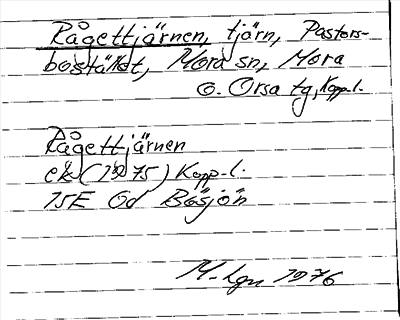 Rågettjärnen, tjärn, Pastors-
bostället, Mora sn, Mora
o. Orsa tg, Kopp. l.
Rågettjärnen
ek (1975) Kopp. l.
15E Od Bösjön
M-lgn 1976